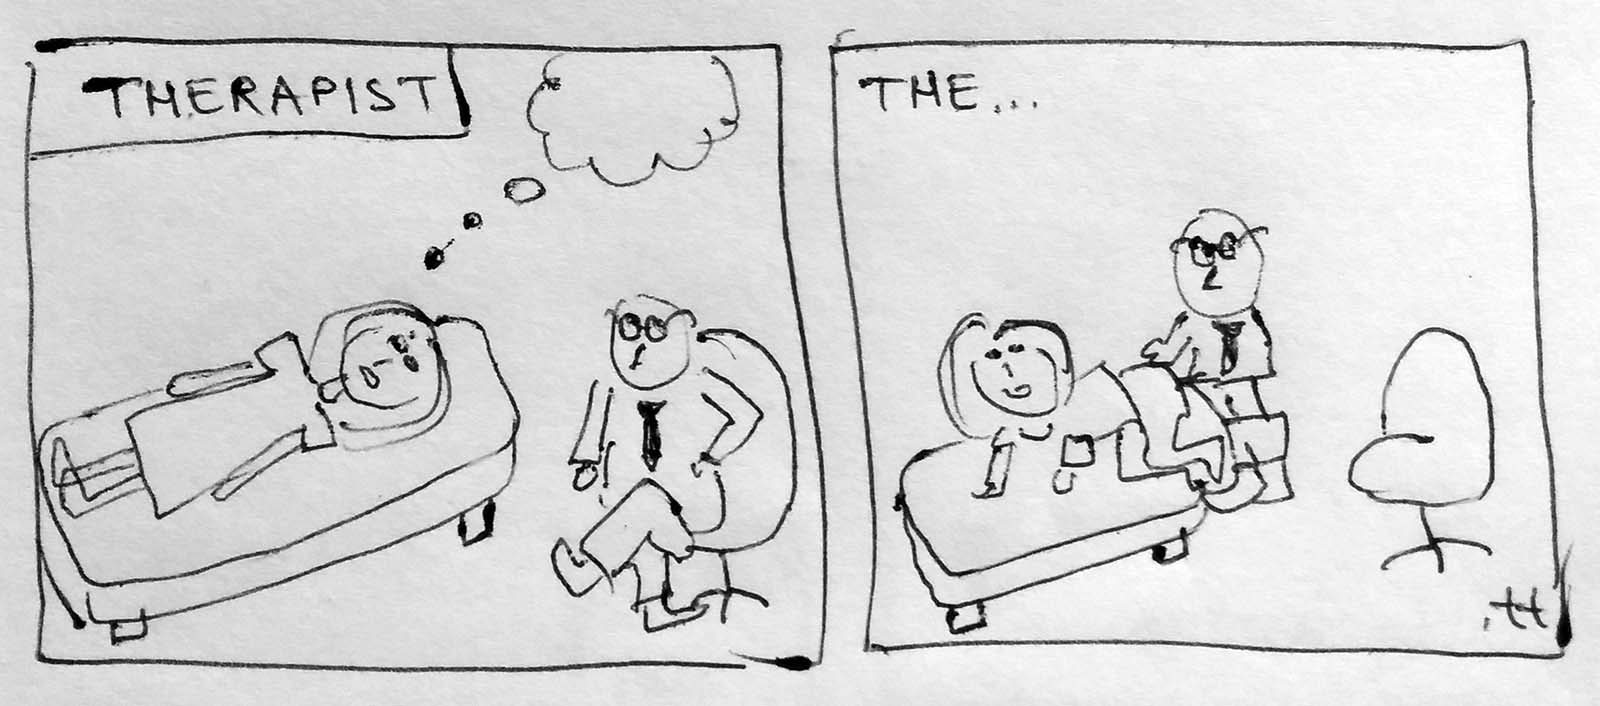 THERAPIST
THE...
.tt